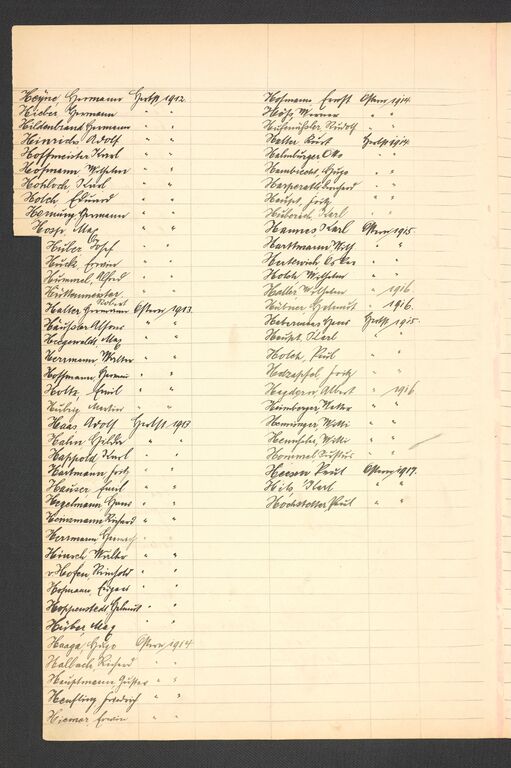 Heyne Hermann Herbst 1912
Hieber Hermann " "
Hildenbrand Hermann " "
Hinrichs Adolf " "
Hoffmeister Karl " "
Hofmann Wilhelm " "
Hohloch Karl " "
Holch Eduard " "
Hornung Hermann " "
Hosp Max " "
Huber Josef " "
Huck, Erwin " "
Hummel, Alfred " "
Hüttenmeister, Robert
Halter Hermann Ostern 1913
Häussler Alfons " "
Max " "
Herrmann, Walter " "
Hoffmann, Herman " "
Holtz, Emil " "
Hubrig Martin " "
Haas Adolf Herbst 1913
Hahn Gilbr " "
Happold, Karl " "
Hartmann Fritz " "
Hauser Emil " "
Hegelmann Hans " "
Henzmann Richard " "
Herrmann " "
Hinsch Walter " "
v. Hofen Reinhold " "
Hofmann, Eugen " "
Hoppenstedt Helmut " "
Huber Max " "
Haaga, Hugo Ostern 1914
Halbach Richard " "
Hauptmann Gustav " "
Henfling Friedrich " "
Hiemer, Erwin " "
Hofmann Ernst Ostern 1914
Höss Werner " "
Rudolf " "
Halter Kurt Herbst 1914
Halmburger Otto " "
Hambrecht, Hugo " "
" "
Haupt, Fritz " "
Karl " "
Hannes Karl Ostern 1915
Harttmann Wilh " "
Oskar " "
Holch Wilhelm " "
Haller Wilhelm " 1916
Hübner Helmut " 1916.
Hans Herbst 1915
Haupt, Karl " "
Holch, Paul " "
Hetzapfel, Fritz " "
Albert " 1916
Heimberger Walter " "
Hornunger, Willi " "
Willi " "
Hommel Justus " "
Paul Ostern 1917.
Hils Karl " "
Höchstetter Paul " "